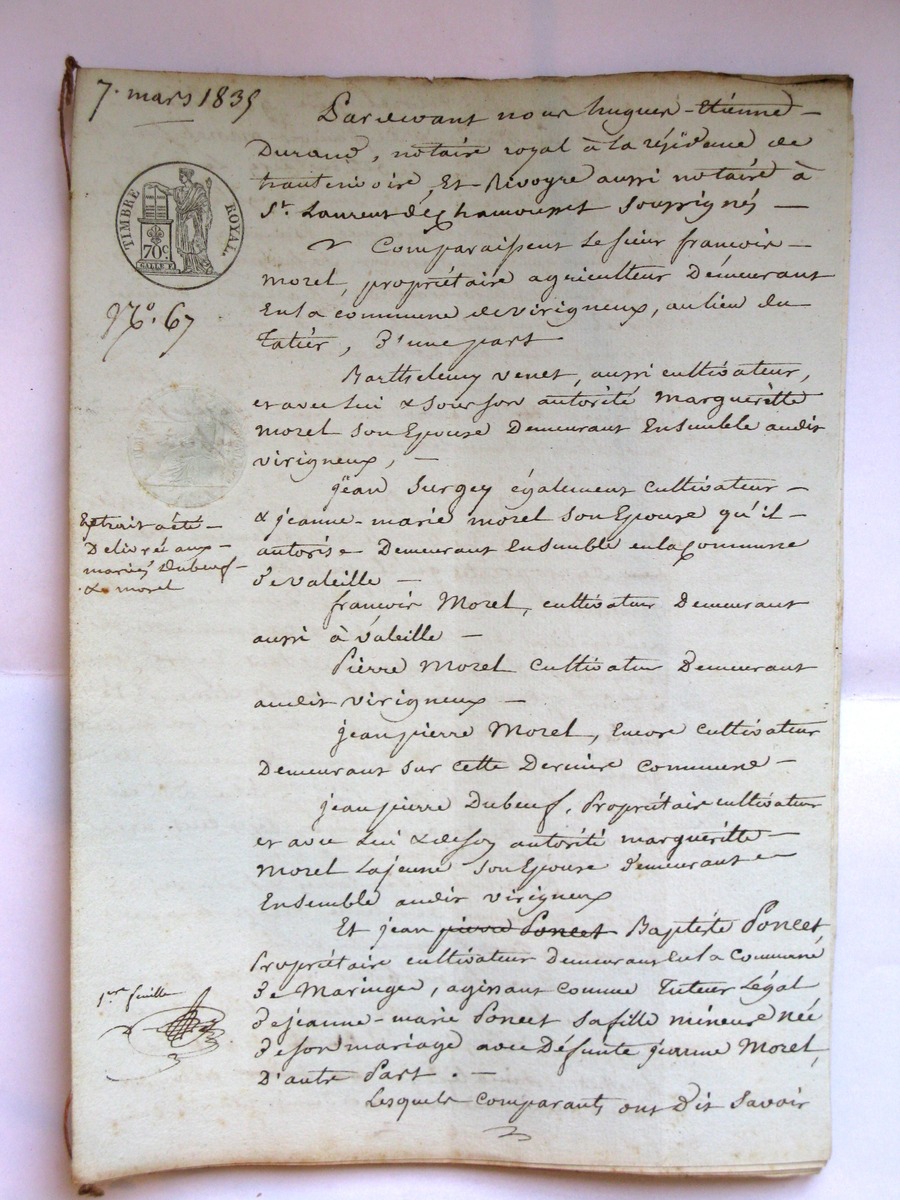 7. mars 1835
Pardevant nous hugues-étienne -
Durand, notaire royal à la résidence de
hauterivoire, Et Rivoyre aussi notaire à
St. Laurent de Chamousset soussignés —
Comparaissent Le sieur françois -
morel, propriétaire agriculteur Demeurant
En la commune de virigneux, au lieu du
, D'une part
Barthelemy venet, aussi cultivateur,
et avec lui & sous son autorité Margueritte
morel son Epouse Demeurant Ensemble audit
virigneux, —
jean Surgey également cultivateur -
& jeanne-marie morel son Epouse qu'il -
autorise Demeurant Ensemble en la Commune
de valeille —
françois Morel, cultivateur Demeurant
aussi à valeille —
Pierre Morel cultivateur Demeurant
audit virigneux —
jean pierre Morel, Encore cultivateur
Demeurant sur cette Dernière commune -
jean pierre Dubeuf, Propriétaire cultivateur
et avec Lui & de son autorité margueritte -
morel La jeune son Epouse demeurant
Ensemble audit virigneux
Et jean pierre Poncet Baptiste Poncet
Propriétaire cultivateur Demeurant En La Commune
de Maringe, agissant comme Tuteur Légal
de jeanne-marie Poncet sa fille mineure née
de son mariage avec Défunte jeanne Morel,
D'autre Part . —
Lesquels comparants ont Dit Savoir
TIMBRE ROYAL.
70c.
No. 67
Extrait a été -
Délivré aux -
mariés Dubeuf -
& morel
1ere feuille